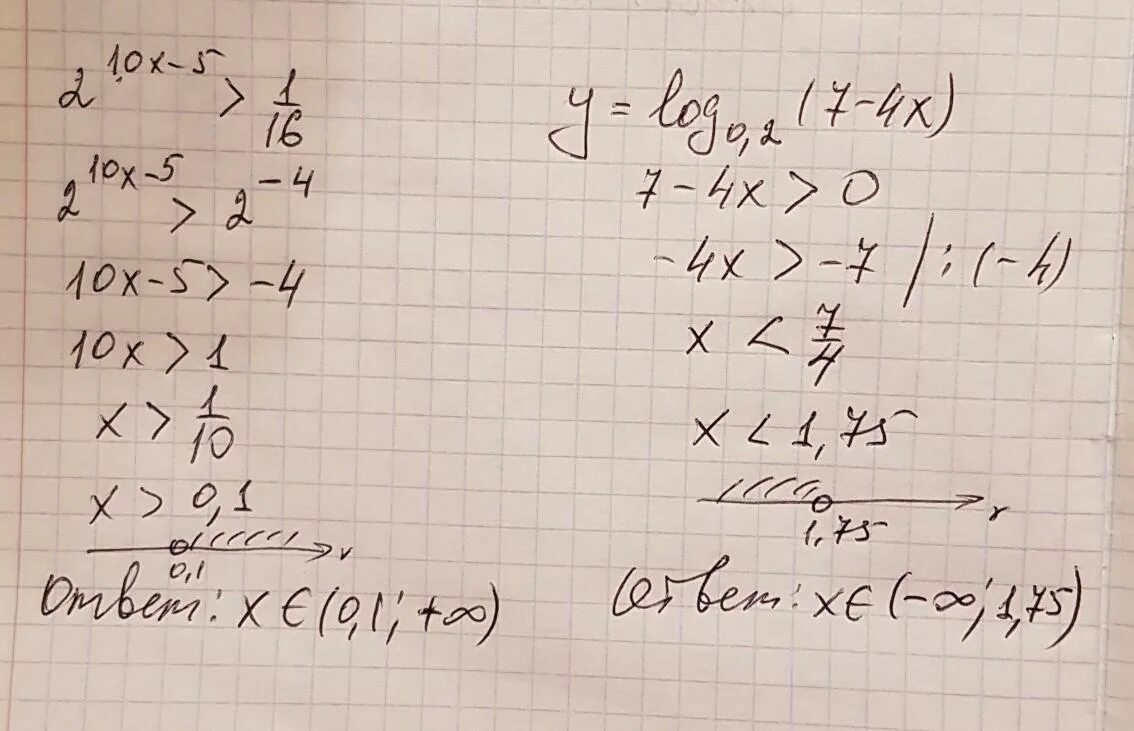 2^(10x-5) > 1/16
2^(10x-5) > 2^(-4)
10x-5 > -4
10x > 1
x > 1/10
x > 0,1
0,1 x
Ответ: x∈(0,1; +∞)
y = log_0,2 (7-4x)
7-4x > 0
-4x > -7 | : (-4)
x < 7/4
x < 1,75
1,75 x
Ответ: x∈(-∞; 1,75)